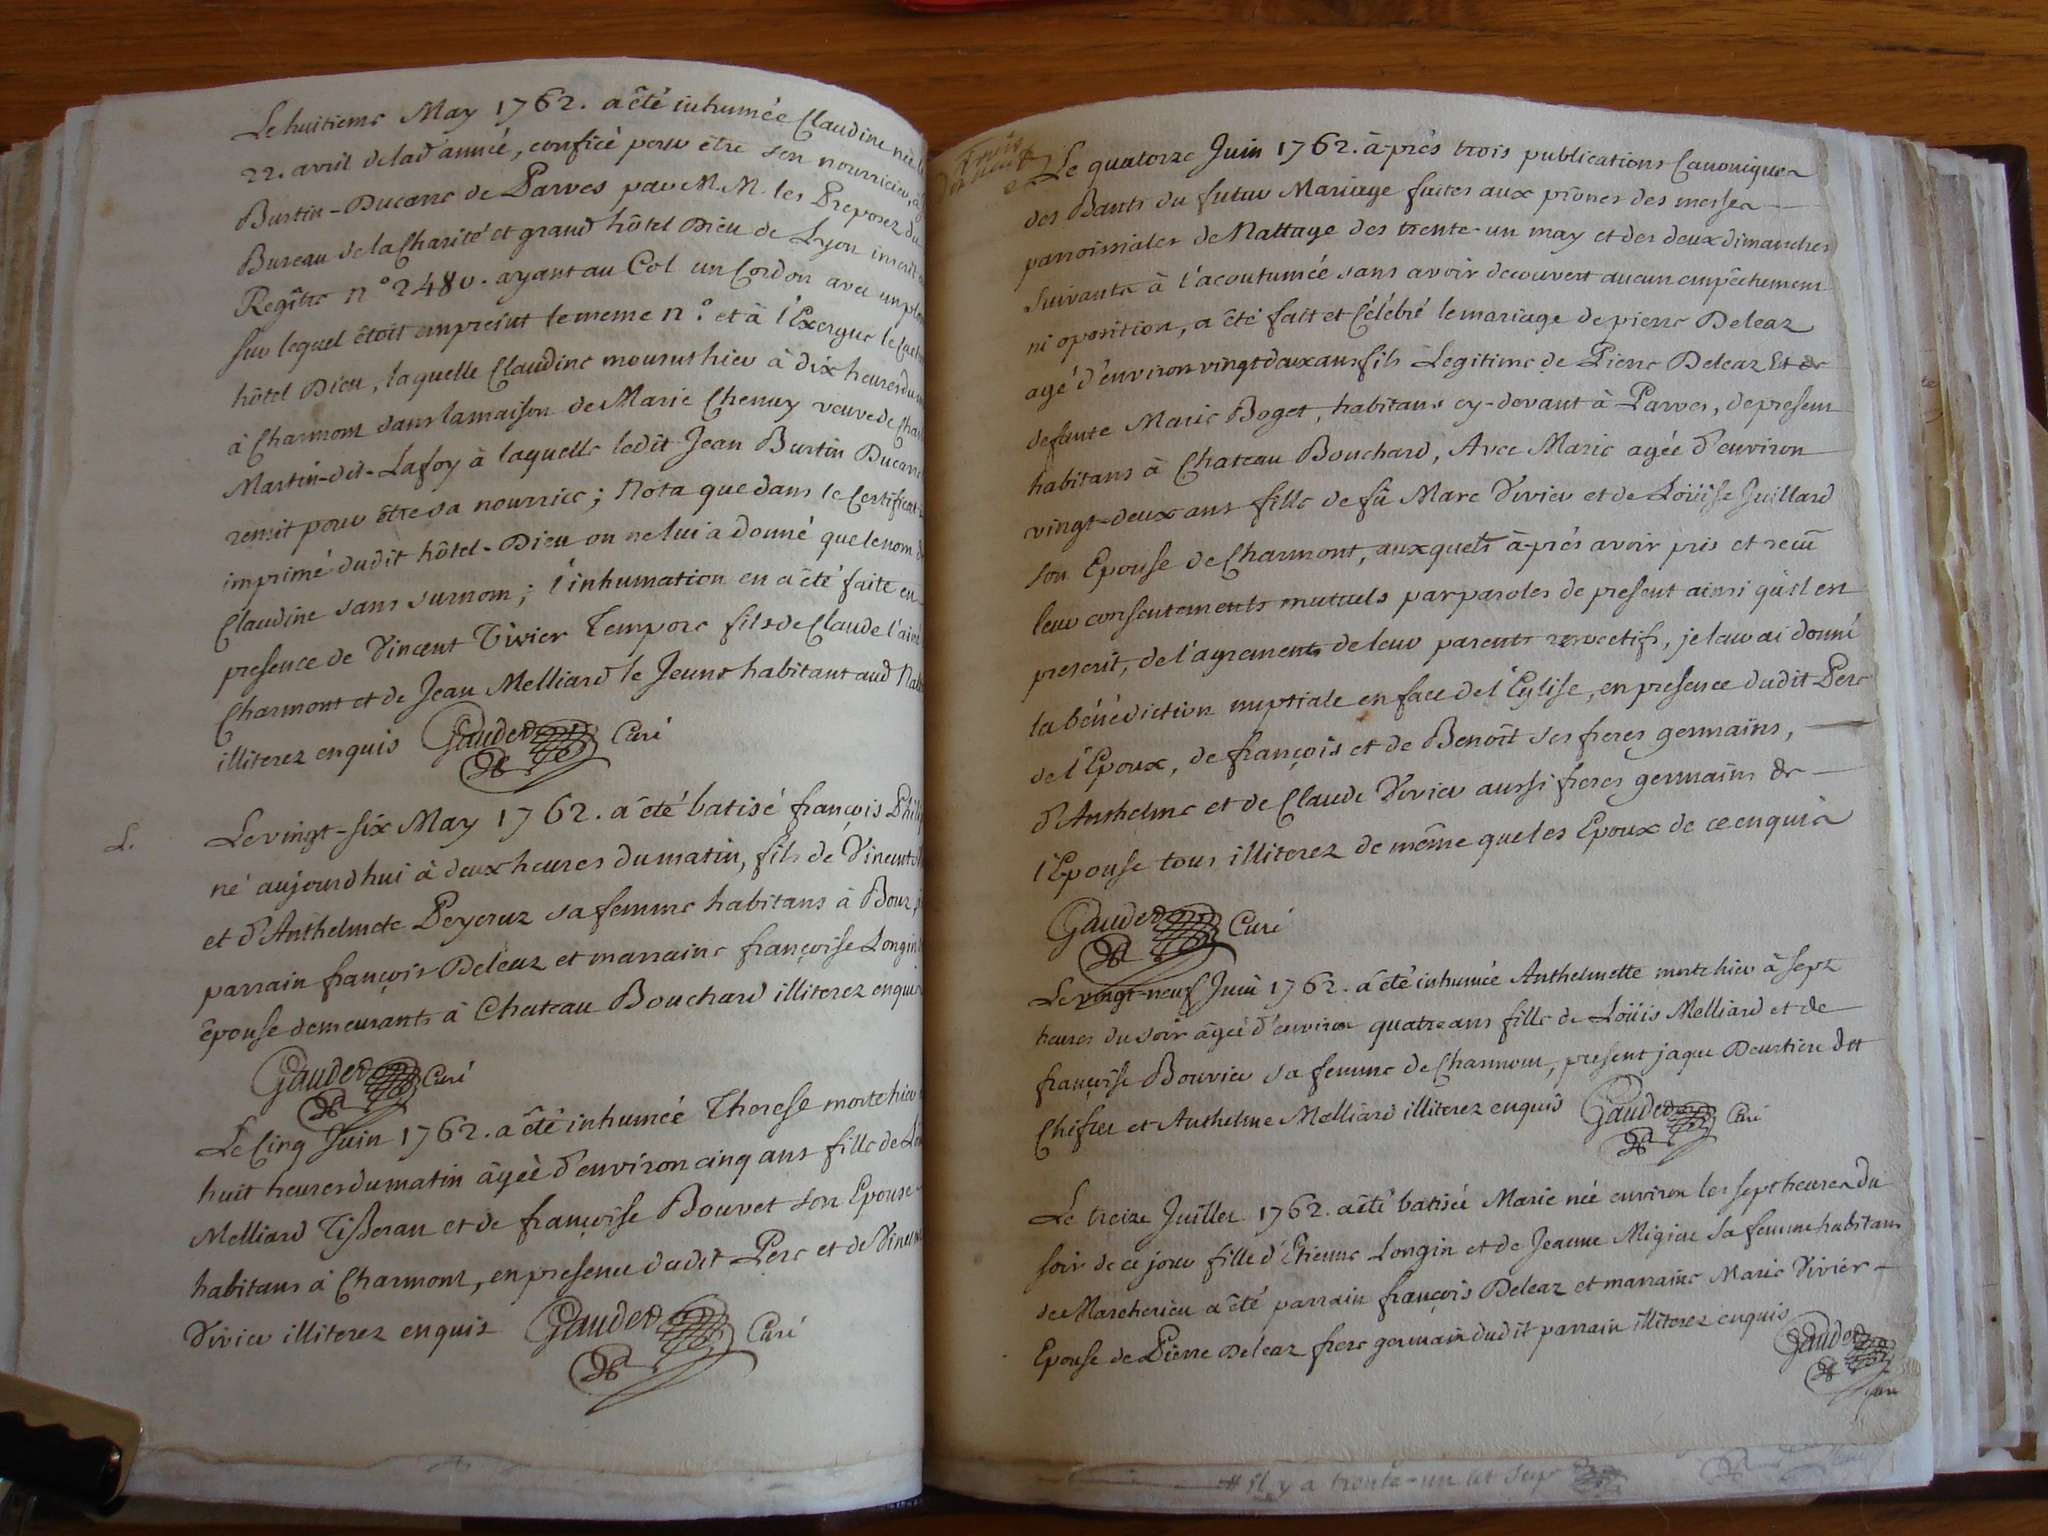 Le huitieme May 1762. a êté inhumée Claudine née le
22. avril de lad. année, confiée pour être son nourricier, à
Burtin-Ducarre de Parves par M. M. les Preposez du
Bureau de la Charité et grand hôtel Dieu de Lyon inscrit
Regître n.° 2480. ayant au Col un Cordon avec un plom
sur lequel êtoit empreint le meme n.° et à l'Exergue le
hôtel Dieu, laquelle Claudine mourut hier à dix heures du
à Charmont dans la maison de Marie Chenuy veuve de
Martin-dit-Lafoy à laquelle ledit Jean Burtin Ducarre
remit pour être sa nourrice; Nota que dans le Certificat
imprimé dudit hôtel-Dieu on ne lui a donné que le nom de
Claudine sans surnom; l'inhumation en a êté faite en
presence de Vincent Vivier Tempore fils de Claude l'ainé
Charmont et de Jean Melliard le Jeune habitant aud.
illiterez enquis Gauder Curé
L. Le vingt-six May 1762. a êté batisé françois
né aujourd'hui à deux heures du matin, fils de Vincent
et d'Anthelmete Peyeruz sa femme habitans à Bouz,
parrain françois Deleaz et marraine françoise Longin
épouse demeurants à Chateau Bouchard illiterez enquis
Gauder Curé
Le Cinq Juin 1762. a êté inhumée Therese morte hier
huit heures du matin âgée d'environ cinq ans fille de
Melliard Tisseran et de françoise Bouvet son Epouse
habitans à Charmont, en presence dudit Pere et de Vincent
Vivier illiterez enquis Gauder Curé
Le quatorze Juin 1762. à-prés trois publications Canoniques
des Bants du futur Mariage faites aux prônes des messes
parroissiales de Nattage des trente-un may et des deux dimanches
suivants à l'acoutumée sans avoir decouvert aucun empêchement
ni oposition, a êté fait et Célébré le mariage de pierre Deleaz
agé d'environ vingt deux ans fils Legitime de Pierre Deleaz Et de
defunte Marie Boget, habitans cy-devant à Parves, de present
habitans à Chateau Bouchard, Avec Marie agée d'environ
vingt-deux ans fille de fû Marc Vivier et de Loüise Juillard
son Epouse de Charmont, auxquels à-prés avoir pris et reçû
leur consentements mutuels par paroles de present ainsi qu'il en
prescrit, de l'agrements de leur parents respectifs, je leur ai donné
la bénédiction nuptiale en face de l'Eglise, en presence dudit Pere
de l'Epoux, de françois et de Benoît ses freres germains,
d'Anthelme et de Claude Vivier aussi freres germains de
l'Epouse tous illiterez de même que les Epoux de ce enquis
Gauder Curé
Le vingt-neuf Juin 1762. a êté inhumée Anthelmette morte hier à sept
heures du soir âgée d'environ quatre ans fille de Loüis Melliard et de
françoise Bouvier sa femme de Charmont, present jaque Deurtiere dit
Chifler et Anthelme Melliard illiterez enquis Gauder Curé
Le treize Juillet 1762. a êté batisée Marie née environ les sept heures du
soir de ce jour fille d'Etienne Longin et de Jeanne Migieu sa femme habitans
de Marcherieu a êté parrain françois Deleaz et marraine Marie Vivier
Epouse de Pierre Deleaz frere germain dudit parrain illiterez enquis
Gauder
Curé
il y a trente-un